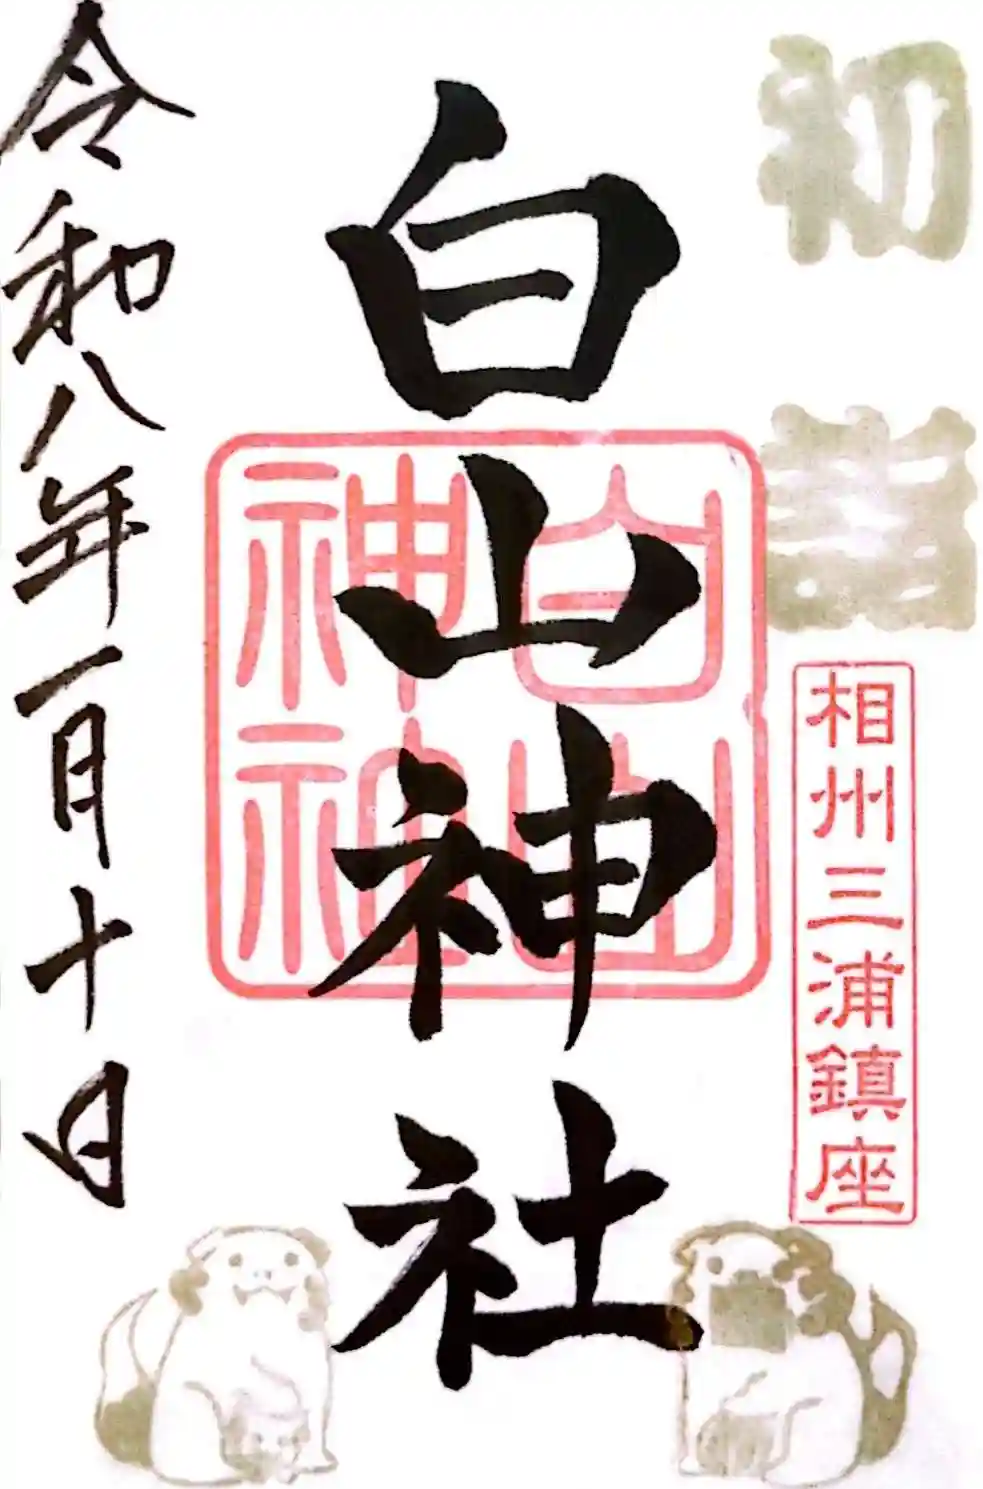 初詣
相州三浦鎮座
白山神社
白山
神社
令和八年一月十日